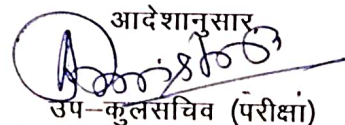 आदेशानुसार
उप-कुलसचिव (परीक्षा)